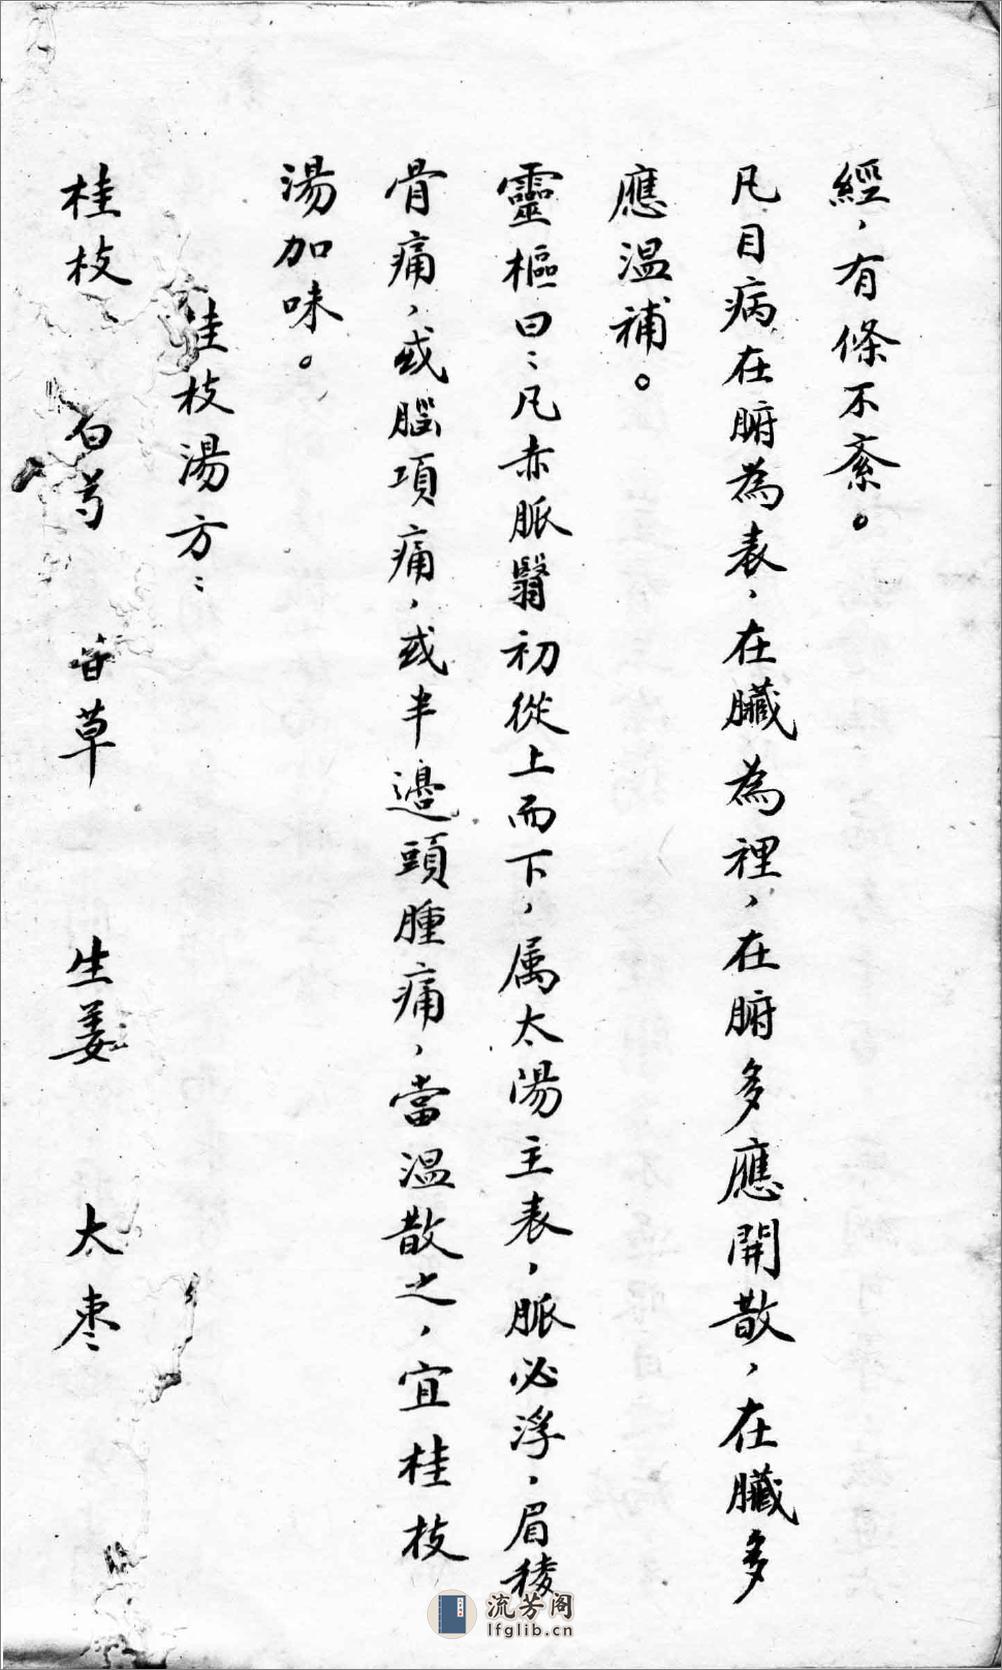 經，有條不紊。
凡目病在腑為表，在臟為裡，在腑多應開散，在臟多
應温補。
靈樞曰：凡赤脈翳初從上而下，属太陽主表，脈必浮，眉稜
骨痛，或腦項痛，或半邊頭腫痛，當温散之，宜桂枝
湯加味。
桂枝湯方：
桂枝 白芍 甘草 生姜 大棗
流芳阁
lfglib.cn